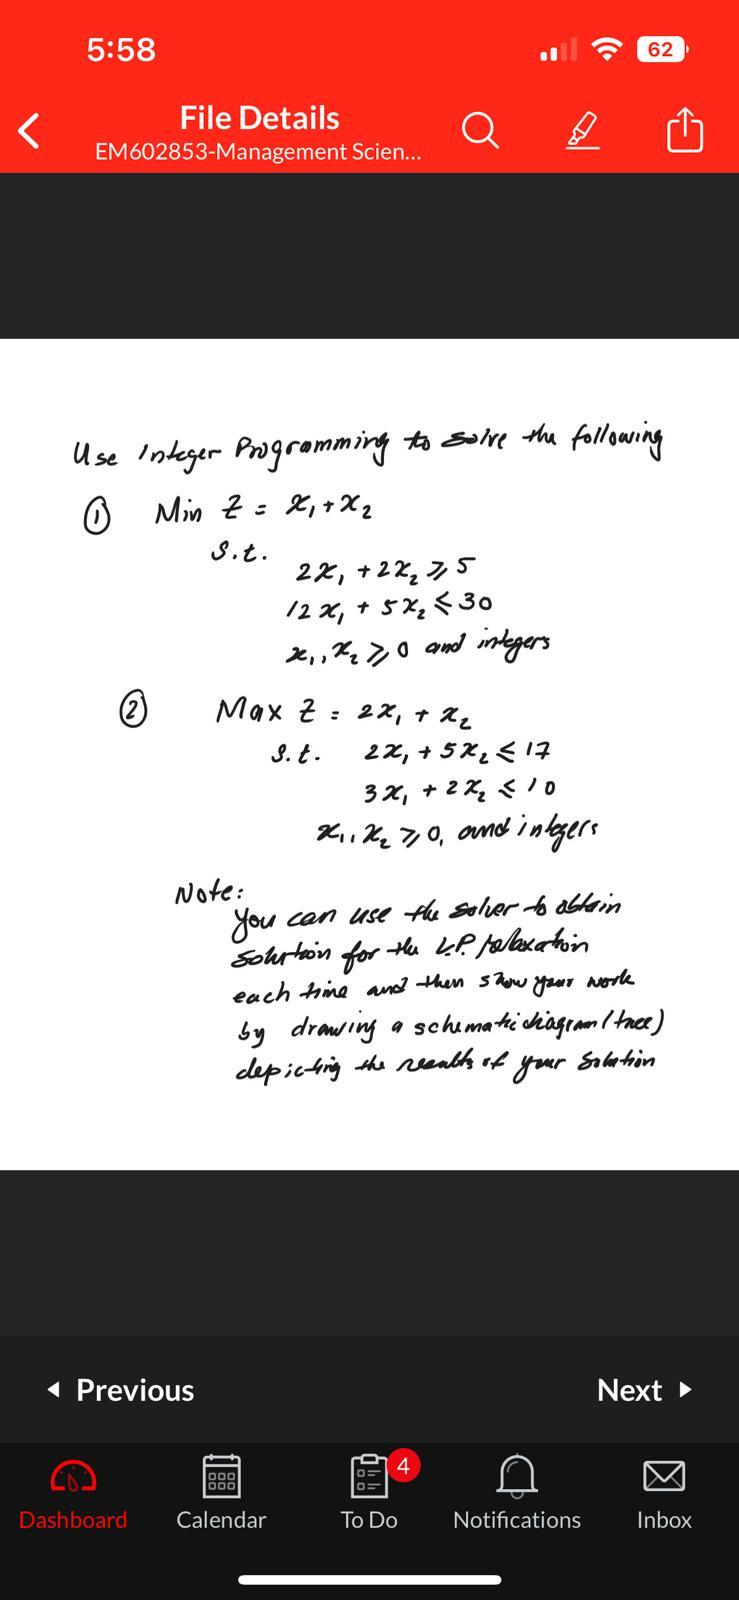 5:58
62
File Details
EM602853-Management Scien...
Use Integer Programming to solve the following
① Min Z = x₁ + x₂
s.t.
2x₁ + 2x₂ ⩾ 5
12x₁ + 5x₂ ⩽ 30
x₁, x₂ ⩾ 0 and integers
② Max Z = 2x₁ + x₂
s.t. 2x₁ + 5x₂ ⩽ 17
3x₁ + 2x₂ ⩽ 10
x₁, x₂ ⩾ 0, and integers
Note:
you can use the solver to obtain
solution for the L.P. relaxation
each time and then show your work
by drawing a schematic diagram (tree)
depicting the results of your solution
Previous
Next
4
Dashboard
Calendar
To Do
Notifications
Inbox